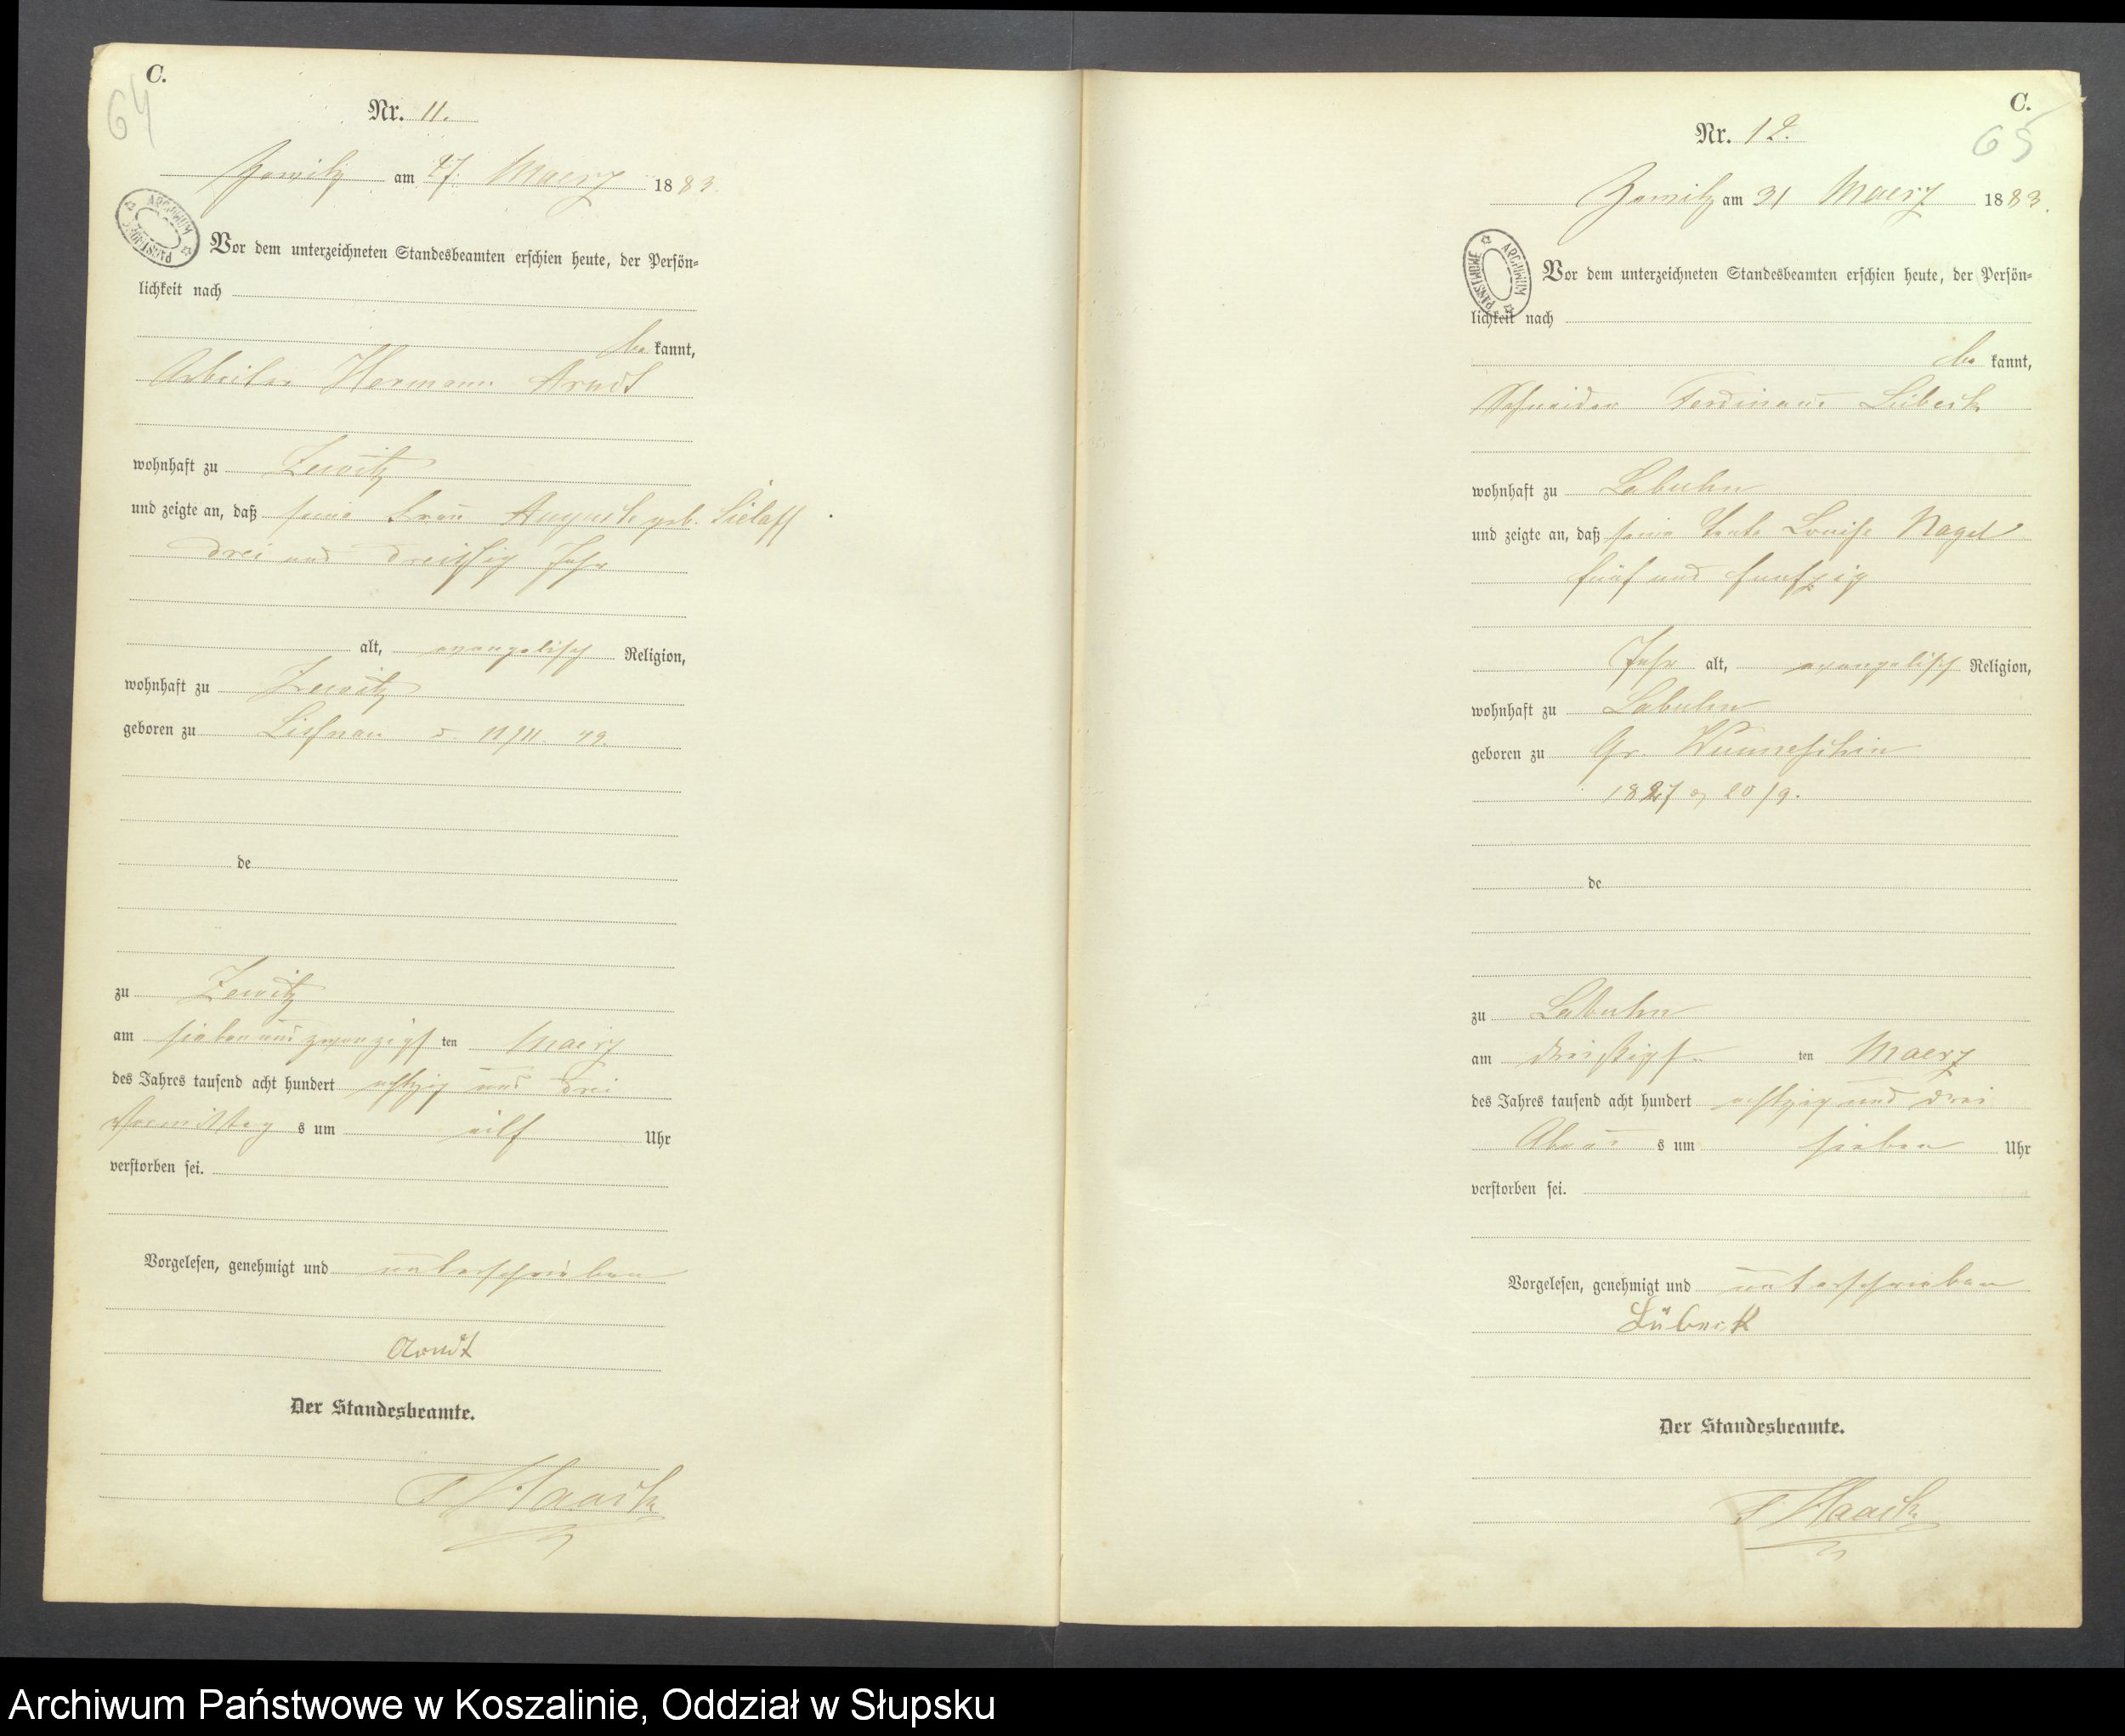 C.
64
Nr. 11.
Zewitz am 27. Maerz 1883.
ARCHIWUM PAŃSTWOWE
Vor dem unterzeichneten Standesbeamten erschien heute, der Persön-
lichkeit nach
be kannt,
Arbeiter Hermann Arndt
wohnhaft zu Zewitz
und zeigte an, daß seine Frau Auguste geb. Sielaff
drei und dreißig Jahr
alt, evangelisch Religion,
wohnhaft zu Zewitz
geboren zu d. 49.
de
zu Zewitz
am siebenundzwanzigsten Maerz
des Jahres tausend acht hundert achtzig und drei
Vormittag s um eilf Uhr
verstorben sei.
Vorgelesen, genehmigt und unterschrieben
Arndt
Der Standesbeamte.
Haack
C.
65
Nr. 12.
Zewitz am 31 Maerz 1883.
ARCHIWUM PAŃSTWOWE
Vor dem unterzeichneten Standesbeamten erschien heute, der Persön-
lichkeit nach
be kannt,
Schneider Ferdinand Lübeck
wohnhaft zu Labuhn
und zeigte an, daß seine Tante Louise Nagel
fünf und funfzig
Jahr alt, evangelisch Religion,
wohnhaft zu Labuhn
geboren zu Gr. Wunneschin
1827 20/9.
de
zu Labuhn
am dreißigsten Maerz
des Jahres tausend acht hundert achtzig und drei
Abend s um sieben Uhr
verstorben sei.
Vorgelesen, genehmigt und unterschrieben
Lübeck
Der Standesbeamte.
Haack
Archiwum Państwowe w Koszalinie, Oddział w Słupsku